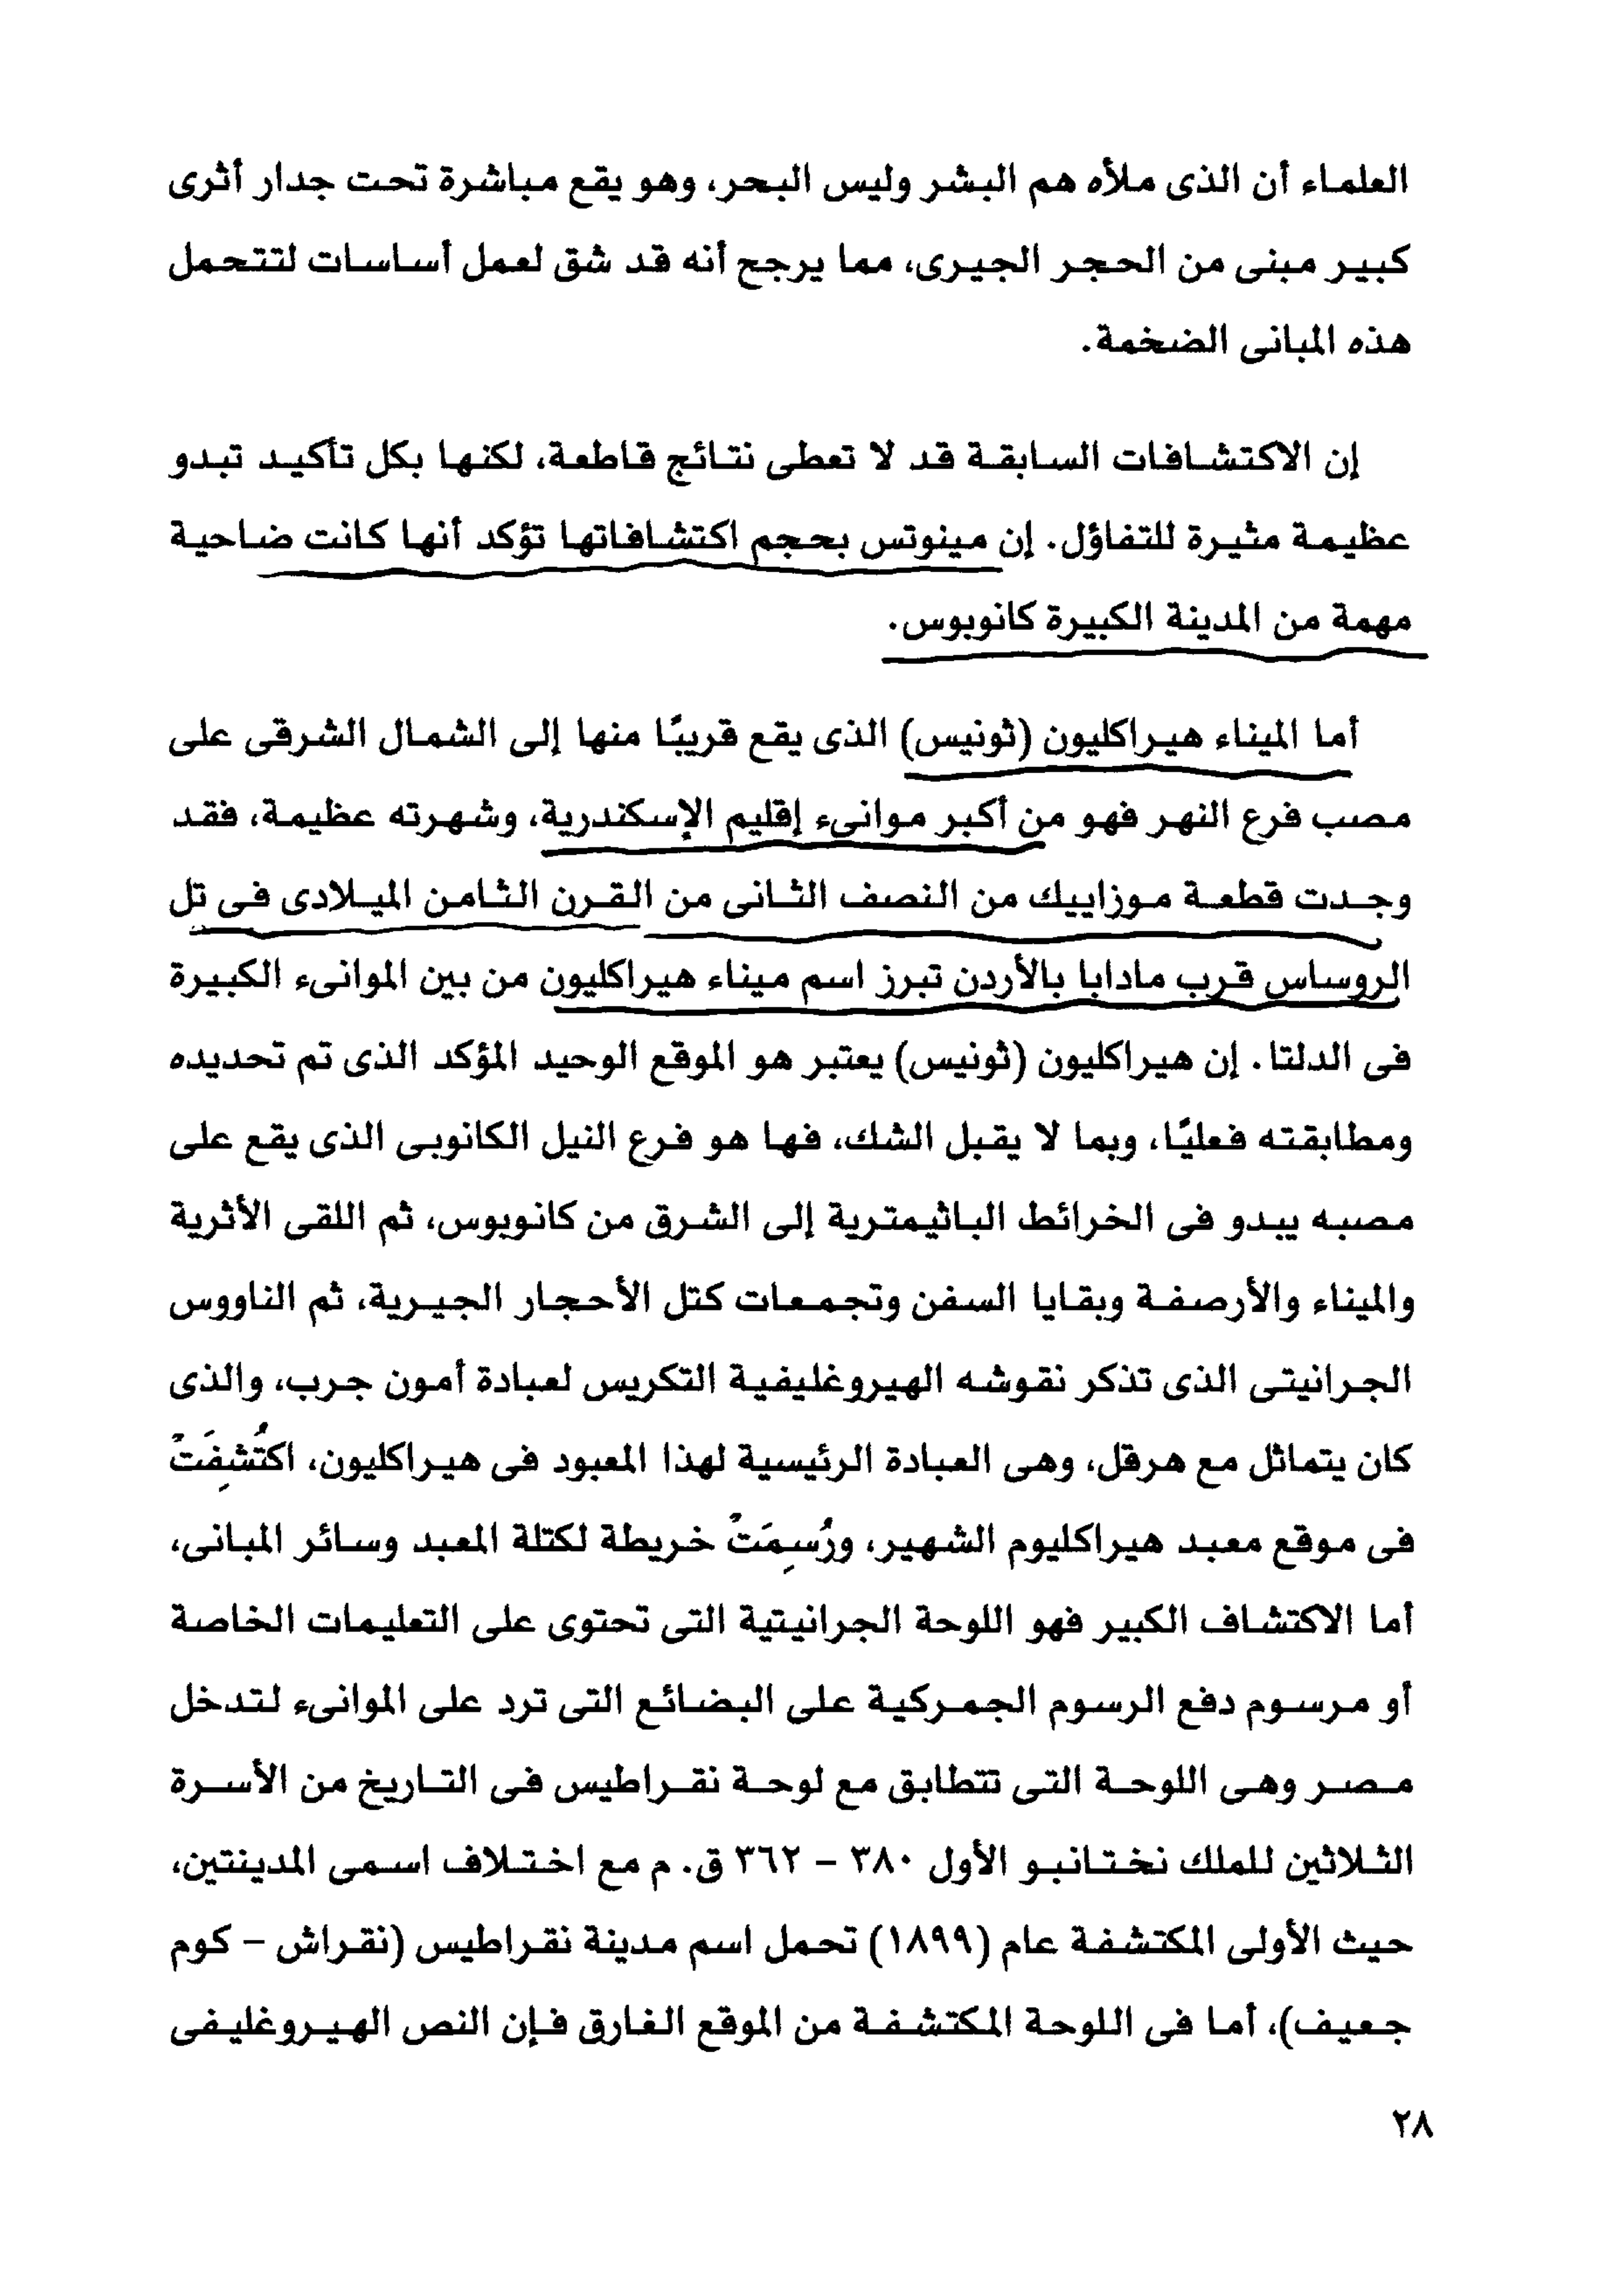 العلماء أن الذى ملأه هم البشر وليس البحر، وهو يقع مباشرة تحت جدار أثرى
كبير مبنى من الحجر الجيرى، مما يرجح أنه قد شق لعمل أساسات لتتحمل
هذه المبانى الضخمة.
إن الاكتشافات السابقة قد لا تعطى نتائج قاطعة، لكنها بكل تأكيد تبدو
عظيمة مثيرة للتفاؤل. إن مينوتس بحجم اكتشافاتها تؤكد أنها كانت ضاحية
مهمة من المدينة الكبيرة كانوبوس.
أما الميناء هيراكليون (ثونيس) الذى يقع قريبًا منها إلى الشمال الشرقى على
مصب فرع النهر فهو من أكبر موانىء إقليم الإسكندرية، وشهرته عظيمة، فقد
وجدت قطعة موزاييك من النصف الثانى من القرن الثامن الميلادى فى تل
الروساس قرب مادابا بالأردن تبرز اسم ميناء هيراكليون من بين الموانىء الكبيرة
فى الدلتا. إن هيراكليون (ثونيس) يعتبر هو الموقع الوحيد المؤكد الذى تم تحديده
ومطابقته فعليًا، وبما لا يقبل الشك، فها هو فرع النيل الكانوبى الذى يقع على
مصبه يبدو فى الخرائط الباثيمترية إلى الشرق من كانوبوس، ثم اللقى الأثرية
والميناء والأرصفة وبقايا السفن وتجمعات كتل الأحجار الجيرية، ثم الناووس
الجرانيتى الذى تذكر نقوشه الهيروغليفية التكريس لعبادة أمون جرب، والذى
كان يتماثل مع هرقل، وهى العبادة الرئيسية لهذا المعبود فى هيراكليون، اكتُشِفَتْ
فى موقع معبد هيراكليوم الشهير، ورُسِمَتْ خريطة لكتلة المعبد وسائر المبانى،
أما الاكتشاف الكبير فهو اللوحة الجرانيتية التى تحتوى على التعليمات الخاصة
أو مرسوم دفع الرسوم الجمركية على البضائع التى ترد على الموانىء لتدخل
مصر وهى اللوحة التى تتطابق مع لوحة نقراطيس فى التاريخ من الأسرة
الثلاثين للملك نختانبو الأول ٣٨٠ – ٣٦٢ ق. م مع اختلاف اسمى المدينتين،
حيث الأولى المكتشفة عام (١٨٩٩) تحمل اسم مدينة نقراطيس (نقراش – كوم
جعيف)، أما فى اللوحة المكتشفة من الموقع الغارق فإن النص الهيروغليفى
٢٨